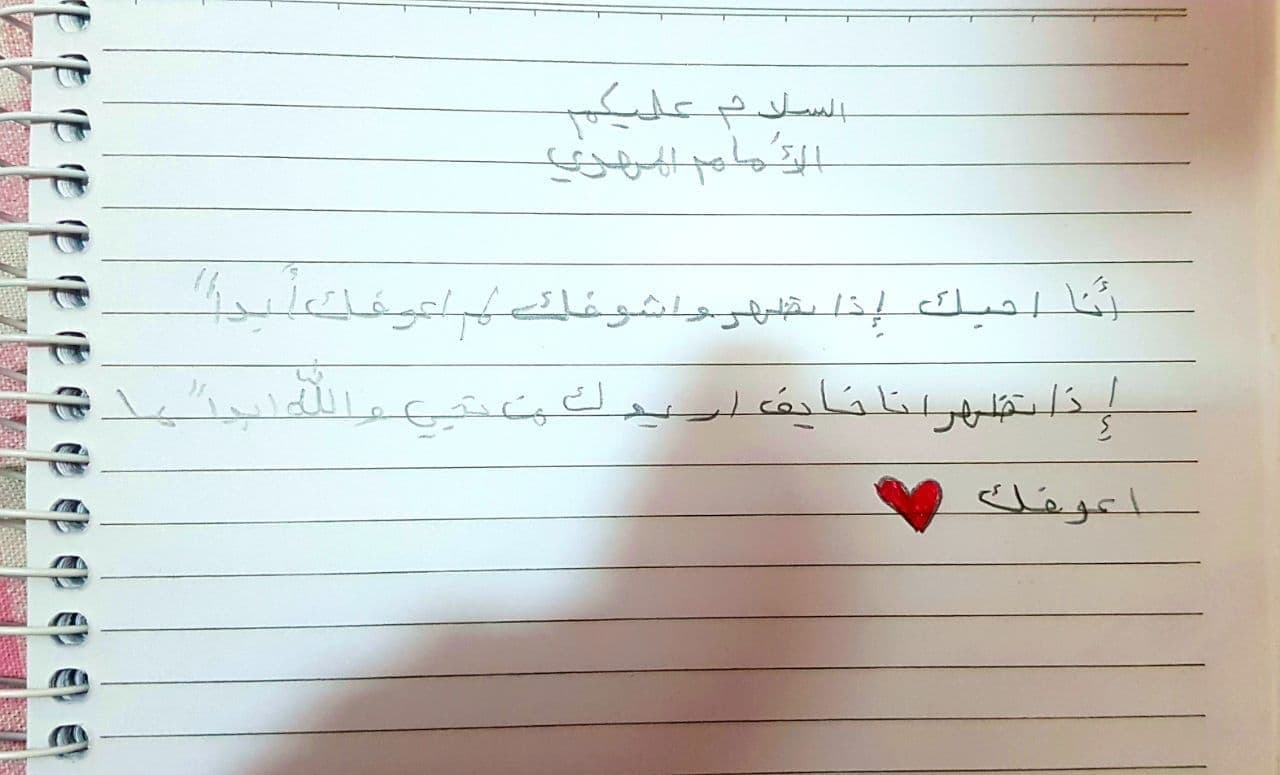 السلام عليكم
الأمام المهدي
أنا احبك إذا تظهر واشوفك لم اعوفك أبداً
إذا تظهر انا خايف اريد لك من تجي والله ابداً ما
اعوفك